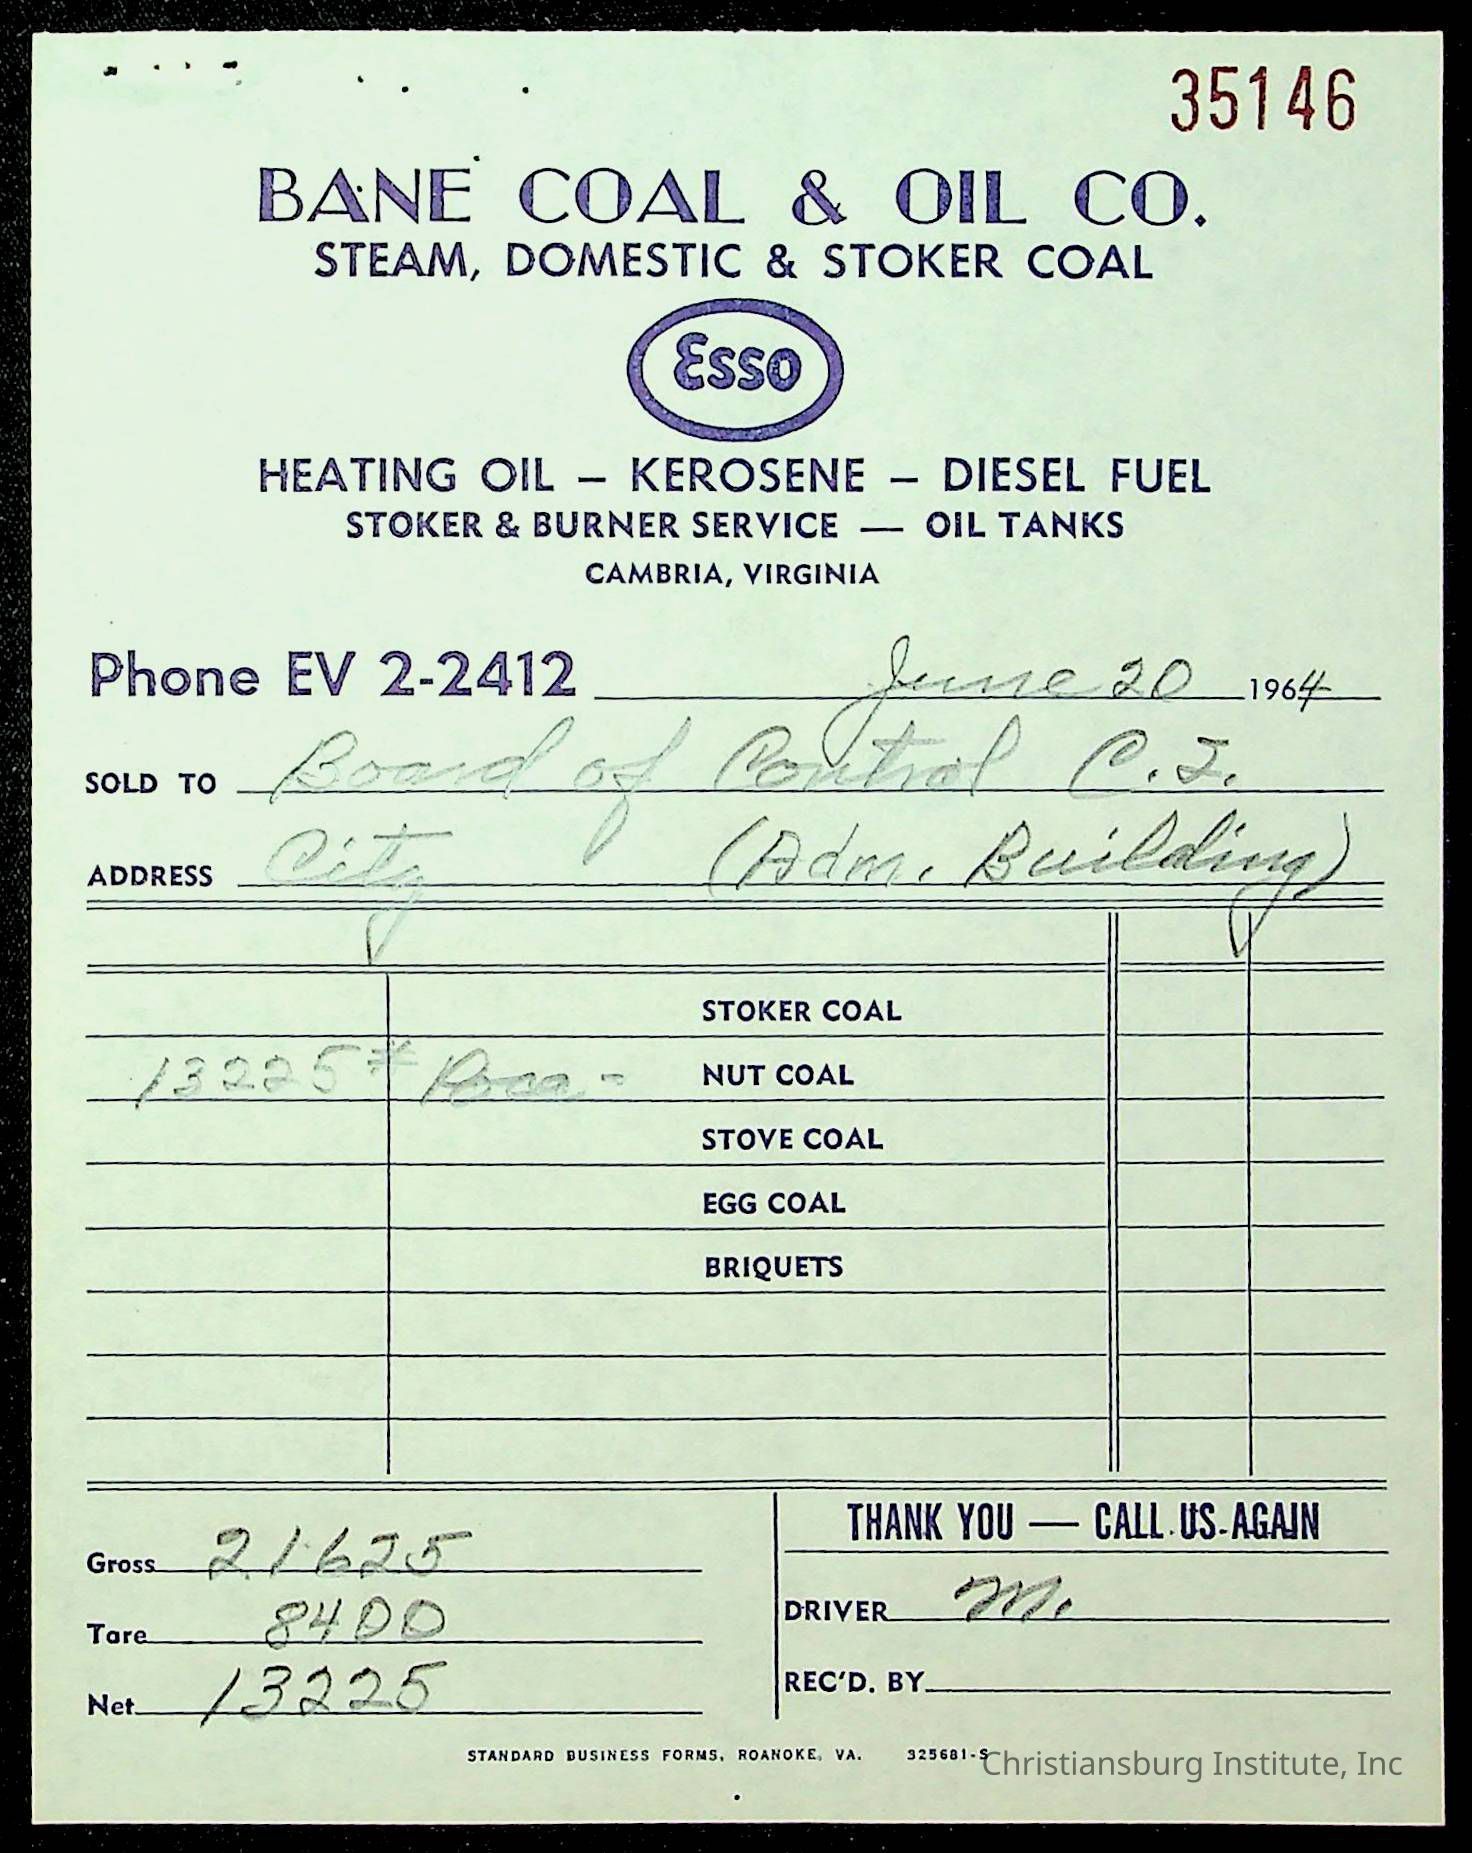 35146
BANE COAL & OIL CO.
STEAM, DOMESTIC & STOKER COAL
Esso
HEATING OIL — KEROSENE — DIESEL FUEL
STOKER & BURNER SERVICE — OIL TANKS
CAMBRIA, VIRGINIA
Phone EV 2-2412 June 20 1964
SOLD TO Board of Control C.I.
ADDRESS City (Adm. Building)
STOKER COAL
13225# Poca - NUT COAL
STOVE COAL
EGG COAL
BRIQUETS
THANK YOU — CALL US AGAIN
Gross 21625
DRIVER M.
Tare 8400
REC'D. BY
Net 13225
STANDARD BUSINESS FORMS, ROANOKE, VA. 325681-S
Christiansburg Institute, Inc